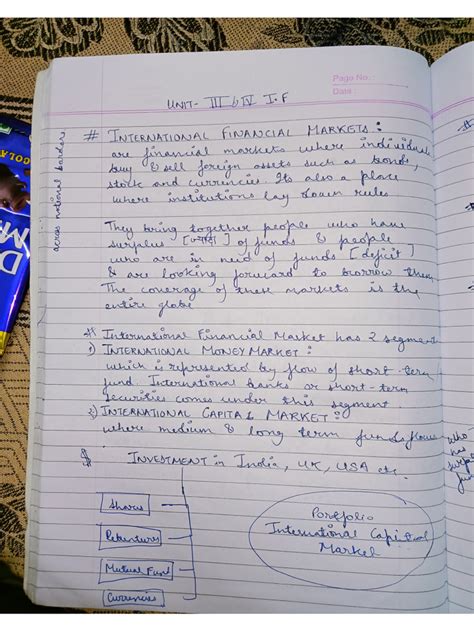 Page No.:
Date:
UNIT- III & IV I.F
across national borders
# INTERNATIONAL FINANCIAL MARKETS :
are financial markets where individuals
buy & sell foreign assets such as bonds,
stock and currencies. Its also a place
where institutions lay down rules.
They bring together people who have
surplus [ज्यादा] of funds & people
who are in need of funds [deficit]
& are looking forward to borrow them
The coverage of these markets is the
entire globe
# International Financial Market has 2 segment
1) INTERNATIONAL MONEY MARKET :
which is represented by flow of short-term
fund. International banks or short-term
securities comes under this segment.
2) INTERNATIONAL CAPITAL MARKET :
where medium & long term funds flows
$ INVESTMENT in India, UK, USA etc.
Shares
Debentures
Mutual Fund
Currencies
Portfolio
International Capital
Market
who
has